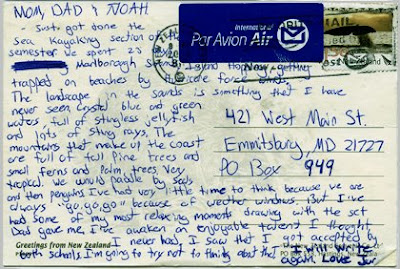 MOM, DAD & NOAH
- Just got done the
Sea Kayaking section of the
semester we spent 23
Marlborough Sound Island Hopping getting
trapped on beaches by force winds.
The landscape in the sounds is something that I have
never seen crystal blue and green
waters full of stingless jellyfish
and lots of sting rays. The
mountains that make up the coast
are full of tall pine trees and
small ferns and palm trees very
tropical. We would paddle by seals
and then penguins. I've had very little time to think because we are
always "go, go, go" because of weather windows. But I've
had some of my most relaxing moments drawing with the set
Dad gave me, I've awaken an enjoyable talent I thought
I never had, I saw that I got accepted by
both schools. I'm going to try not to thinking about that I will write
again Love
International
Par Avion Air
New Zealand
421 West Main St.
Emmitsburg, MD 21727
PO Box 949
Greetings from New Zealand